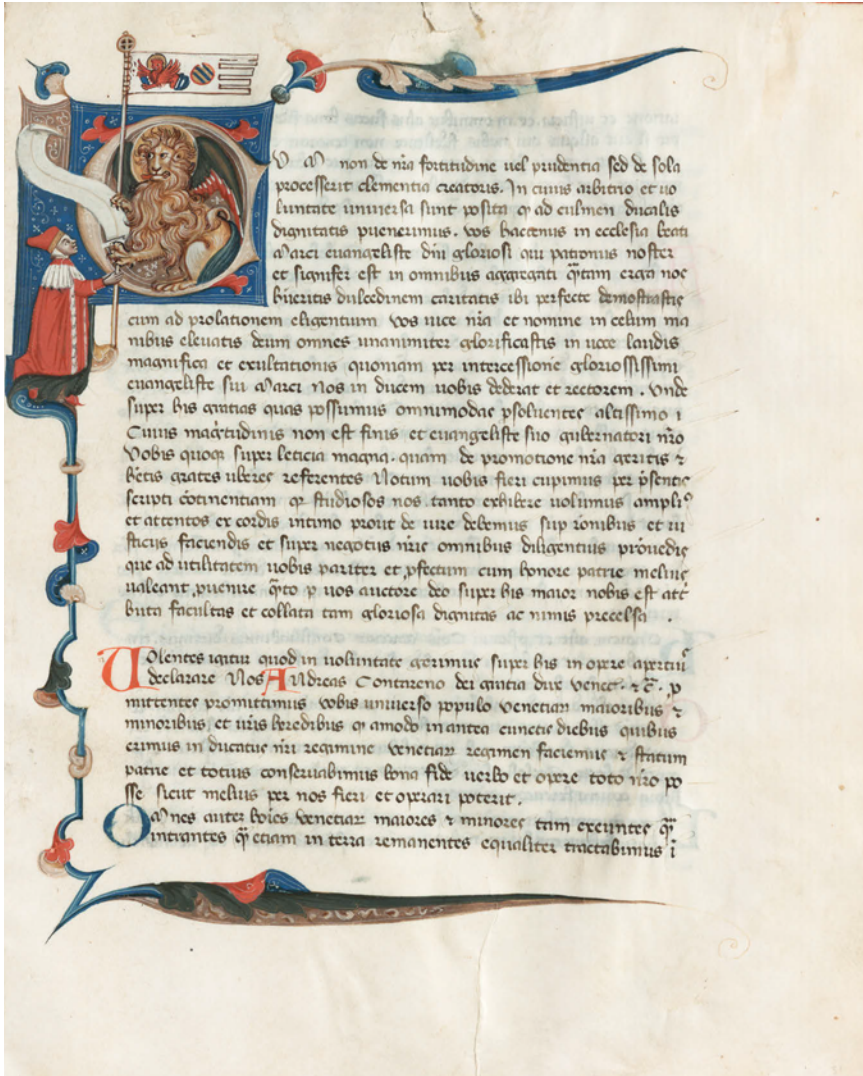 CUM non de nr̄a fortitudine uel prudentia sed de sola
processerit clementia creatoris. In cuius arbitrio et uo
luntate uniuersa sunt posita ꝙ ad culmen ducalis
dignitatis puenerimus. vos hactenus in ecclesia beati
Marci euangeliste dn̄i gloriosi qui patronus noster
et signifer est in omnibus aggregati q̄tam erga nos
h̄ueritis dulcedinem caritatis ibi perfecte demostrastis
cum ad prolationem eligentium vos uice nr̄a et nomine in celum ma
nibus eleuatis deum omnes unanimiter glorificastis in uoce laudis
magnifica et exultationis quoniam per intercessione gloriosissimi
euangeliste sui Marci nos in ducem uobis dederat et rectorem. Vnde
super his gratias quas possumus omnimodas psoluentes altissimo i
Cuius mag̅tudinis non est finis et euangeliste suo gubernatori nr̄o
Vobis quoq super leticia magna. quam de promotione nr̄a geritis ⁊
h̄etis grates uberes referentes Notum uobis fieri cupimus per p̄sentis
scripti cōtinentiam ꝙ studiosos nos tanto exhibere uolumus ampliꝰ
et attentos ex cordis intimo prout de iure debemus sup rōnibus et iu
sticiis faciendis et super negotiis nr̄is omnibus diligentius prouidēs
que ad utilitatem uobis pariter et ꝓfectum cum honore patrie melius
ualeant, puenire q̄to p uos auctore deo super his maior nobis est att̄
buta facultas et collata tam gloriosa dignitas ac nimis precelsa .
Uolentes igitur quod in uoluntate gerimus super his in opere apertiuˢ
declarare Nos Andreas Contareno dei gratia dux venec. ⁊ c̄. ꝓ
mittentes promittimus vobis uniuerso populo venetiaꝝ maioribus ⁊
minoribus, et ur̄is heredibus ꝙ amodo in antea cunctis diebus quibus
erimus in ducatus nr̄i regimine venetiaꝝ regimen faciemus ⁊ statum
patrie et totius conseruabimus bona fide uerbo et opere toto nr̄o po
sse sicut melius per nos fieri et operari poterit.
OMnes autez hoīes venetiaꝝ maiores ⁊ minores tam exeuntes q̄
intrantes q̄ etiam in terra remanentes equaliter tractabimus ī